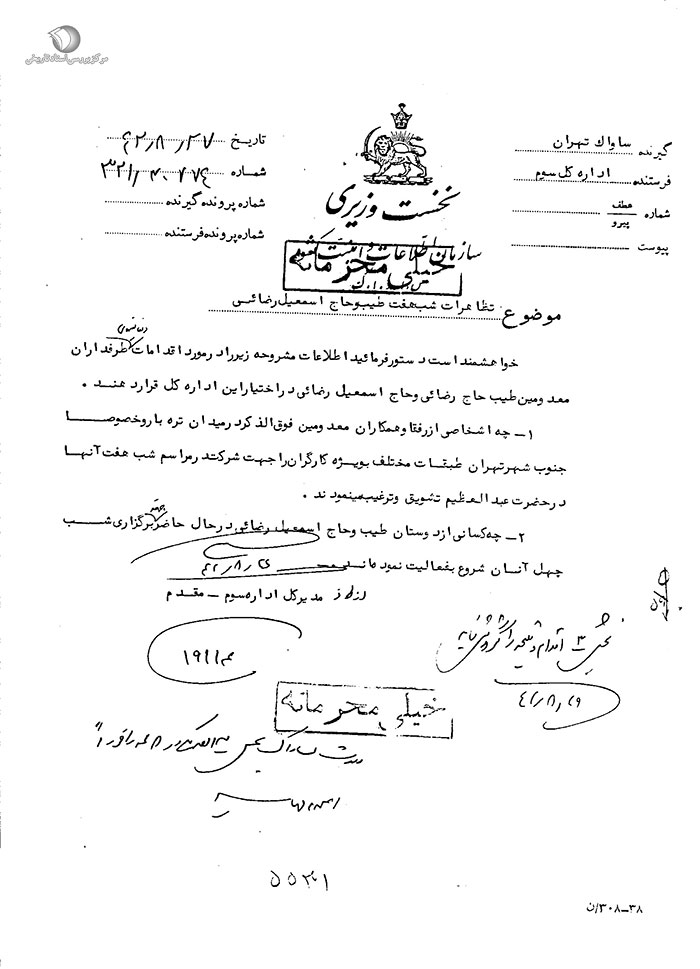 مرکز بررسی اسناد تاریخی
گیرنده ساواك تهران
فرستنده اداره کل سوم
شماره عطف پیرو
پیوست
نخست وزیری
سازمان اطلاعات و امنیت کشور
س.ا.و.ا.ك
خیلی محرمانه
تاریخ ۴۲/۸/۲۷
شماره ۳۲۱/۴۰۷۷۴
شماره پرونده گیرنده
شماره پرونده فرستنده
موضوع : تظاهرات شب هفت طیب وحاج اسمعیل رضائی
خواهشمند است دستور فرمائید اطلاعات مشروحه زیر را در مورد اقدامات طرفداران
معدومین طیب حاج رضائی وحاج اسمعیل رضائی در اختیار این اداره کل قرار دهند .
۱– چه اشخاصی از رفقا وهمکاران معدومین فوق الذکر در میدان تره بار وخصوصا
جنوب شهر تهران طبقات مختلف بویژه کارگران را جهت شرکت در مراسم شب هفت آنها
در حضرت عبدالعظیم تشویق وترغیب مینمودند .
۲– چه کسانی از دوستان طیب وحاج اسمعیل رضائی در حال حاضر جهت برگزاری شب
چهل آنان شروع بفعالیت نموده اند
۴۲/۸/۲۶
مدیر کل اداره سوم – مقدم
بخش ۳ اقدام و نتیجه را گزارش نمایید
۴۲/۸/۲۹
۱۹۱۱
خیلی محرمانه
۵۵۳۱
۳۸–۳۰۸/ن